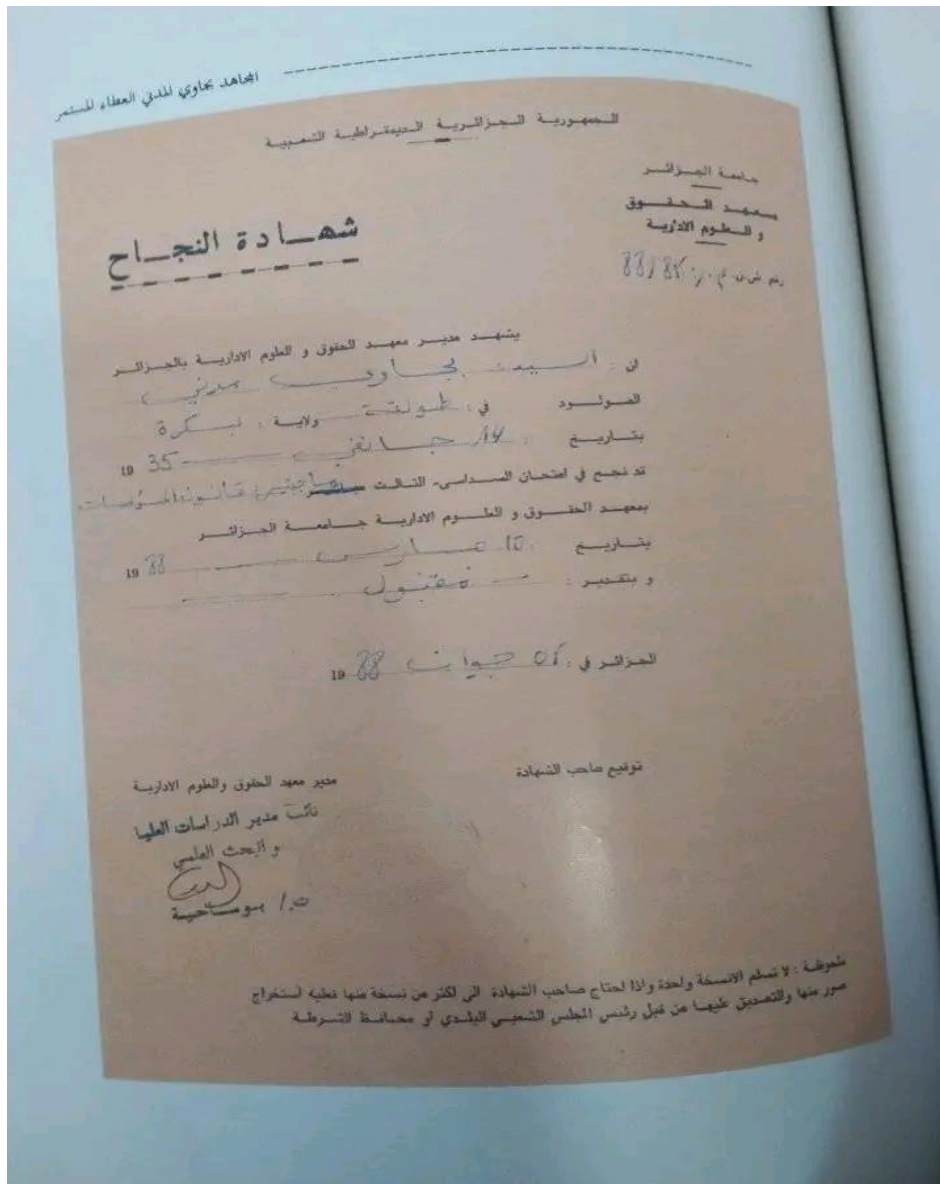 المجاهد بجاوي المدني العطاء المستمر
الجمهورية الجزائرية الديمقراطية الشعبية
جامعة الجزائر
معهد الحقوق
و العلوم الادارية
رقم
شهادة النجاح
يشهد مدير معهد الحقوق و العلوم الادارية بالجزائر
ان : السيد بجاوي مدني
المولود في : طولقة ولاية : بسكرة
بتاريخ : 14 جانفي 35 19
قد نجح في امتحان السداسي الثالث ماجيستير قانون المؤسسات
بمعهد الحقوق و العلوم الادارية جامعة الجزائر
بتاريخ : مارس 88 19
و بتقدير : مقبول
الجزائر في : جوان 88 19
توقيع صاحب الشهادة
مدير معهد الحقوق والعلوم الادارية
نائب مدير الدراسات العليا
و البحث العلمي
ت / بوساحية
ملحوظة : لا تسلم الانسخة واحدة واذا احتاج صاحب الشهادة الى اكثر من نسخة منها فعليه استخراج
صور منها والتصديق عليها من قبل رئيس المجلس الشعبي البلدي او محافظ الشرطة